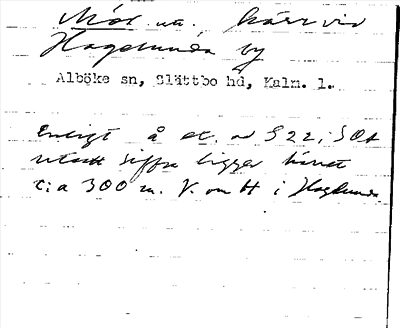 Möt na, kärr vid
Hagelunda by
Alböke sn, Slättbo hd, Kalm. l.
Enligt å et. nd S 22; S Ö A
utsatt siffra ligger kärret
c:a 300 m. V. om H i Hagelunda